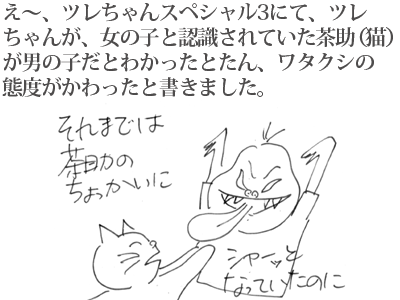 え～、ツレちゃんスペシャル3にて、ツレ
ちゃんが、女の子と認識されていた茶助（猫）
が男の子だとわかったとたん、ワタクシの
態度がかわったと書きました。
それまでは
茶助の
ちょっかいに
シャーッと
なっていたのに